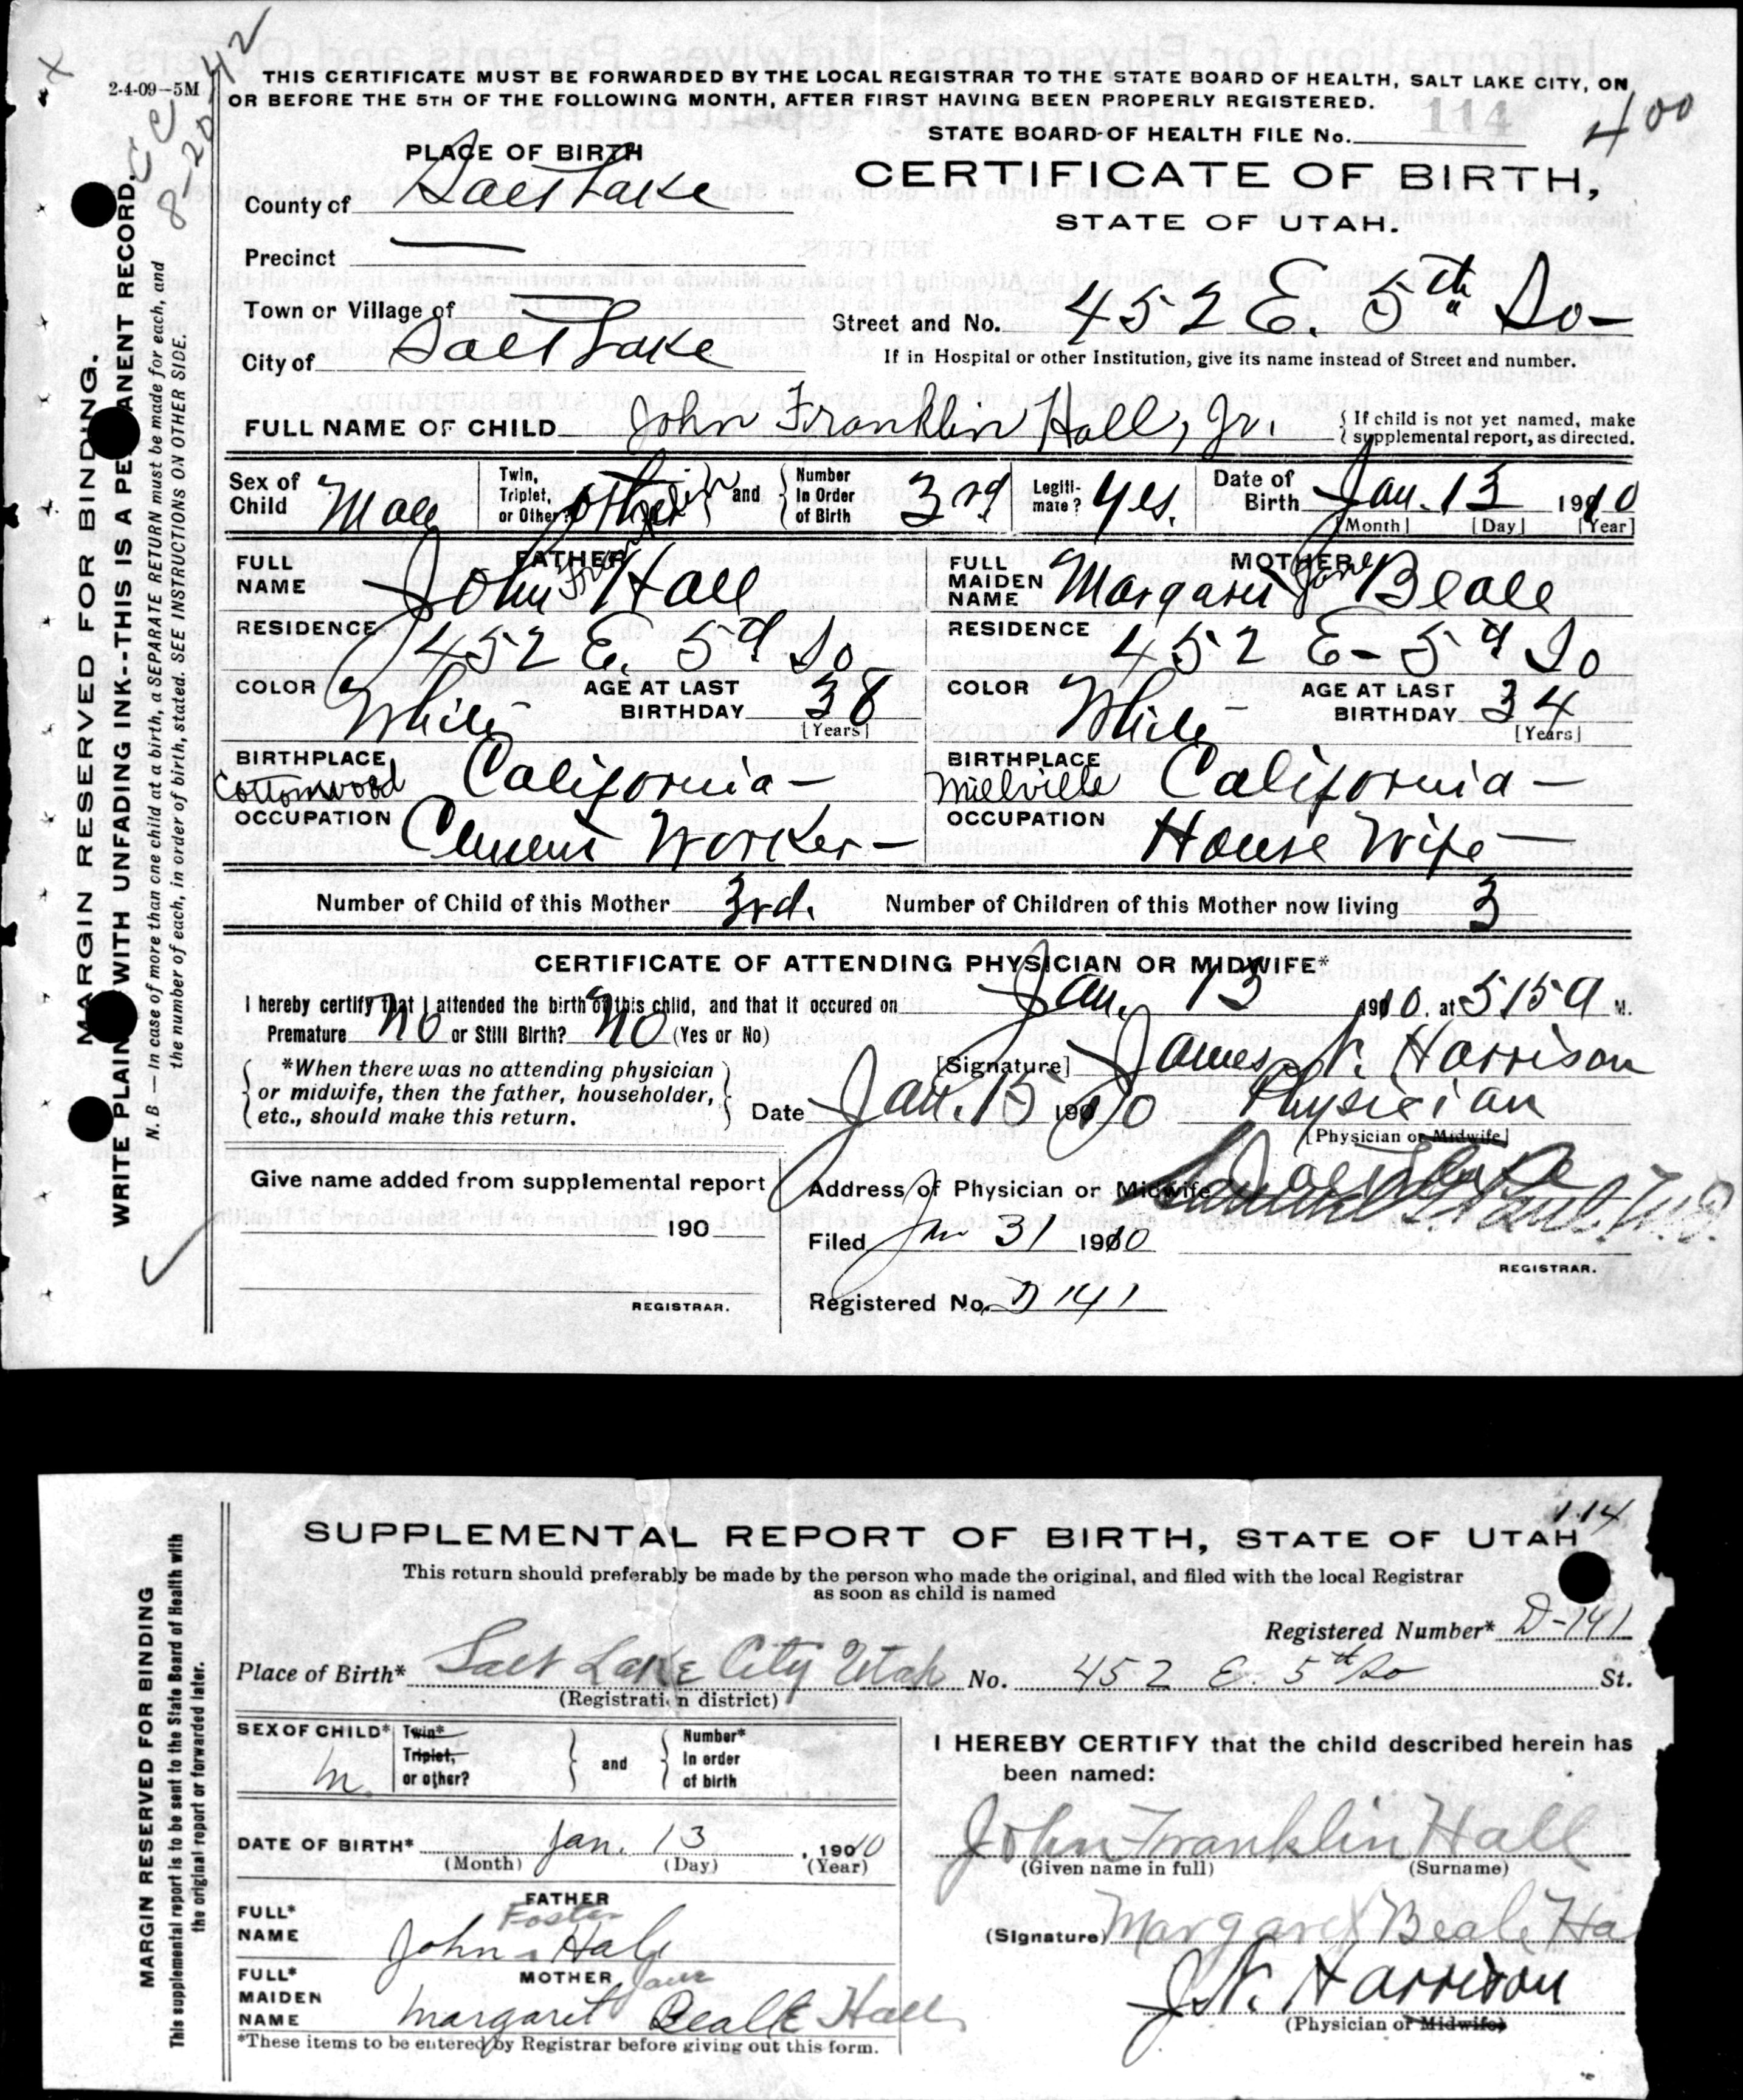 2-4-09--5M
8-20-42
THIS CERTIFICATE MUST BE FORWARDED BY THE LOCAL REGISTRAR TO THE STATE BOARD OF HEALTH, SALT LAKE CITY, ON
OR BEFORE THE 5TH OF THE FOLLOWING MONTH, AFTER FIRST HAVING BEEN PROPERLY REGISTERED.
STATE BOARD OF HEALTH FILE No. 114
400
PLACE OF BIRTH
CERTIFICATE OF BIRTH,
STATE OF UTAH.
County of Salt Lake
Precinct —
Town or Village of
Street and No. 452 E. 5th So-
City of Salt Lake
If in Hospital or other Institution, give its name instead of Street and number.
FULL NAME OF CHILD John Franklin Hall, Jr. { If child is not yet named, make supplemental report, as directed.
Sex of Child Male Twin, Triplet, or Other? and Number in Order of Birth 3rd Legitimate? Yes. Date of Birth Jan. 13 1910
[Month] [Day] [Year]
FATHER
FULL NAME John Hall
RESIDENCE 452 E. 5th So
COLOR White AGE AT LAST BIRTHDAY 38 [Years]
BIRTHPLACE Cottonwood California -
OCCUPATION Cement Worker -
MOTHER
FULL MAIDEN NAME Margaret Jane Beale
RESIDENCE 452 E - 5th So
COLOR White AGE AT LAST BIRTHDAY 34 [Years]
BIRTHPLACE Millville California -
OCCUPATION House Wife -
Number of Child of this Mother 3rd. Number of Children of this Mother now living 3
CERTIFICATE OF ATTENDING PHYSICIAN OR MIDWIFE*
I hereby certify that I attended the birth of this child, and that it occured on Jan. 13 1910. at 515 a M.
Premature No or Still Birth? No (Yes or No)
*When there was no attending physician or midwife, then the father, householder, etc., should make this return.
[Signature] James N. Harrison
Date Jan. 15 1910 Physician
[Physician or Midwife]
Give name added from supplemental report
190
REGISTRAR.
Address of Physician or Midwife Salt Lake
Filed Jan 31 1910
REGISTRAR.
Registered No. D 141
MARGIN RESERVED FOR BINDING.
WRITE PLAINLY WITH UNFADING INK--THIS IS A PERMANENT RECORD.
N. B — In case of more than one child at a birth, a SEPARATE RETURN must be made for each, and
the number of each, in order of birth, stated. SEE INSTRUCTIONS ON OTHER SIDE.
114
SUPPLEMENTAL REPORT OF BIRTH, STATE OF UTAH
This return should preferably be made by the person who made the original, and filed with the local Registrar
as soon as child is named
Registered Number* D-141
Place of Birth* Salt Lake City Utah No. 452 E. 5th So St.
(Registration district)
SEX OF CHILD* M. Twin* Triplet, or other? and Number* in order of birth
DATE OF BIRTH* Jan. 13, 1910
(Month) (Day) (Year)
FATHER
FULL* NAME John Foster Hall
MOTHER
FULL* MAIDEN NAME Margaret Jane Beale Hall
*These items to be entered by Registrar before giving out this form.
I HEREBY CERTIFY that the child described herein has
been named:
John Franklin Hall
(Given name in full) (Surname)
(Signature) Margaret Beale Ha
J. N. Harrison
(Physician or Midwife)
MARGIN RESERVED FOR BINDING
This supplemental report is to be sent to the State Board of Health with
the original report or forwarded later.